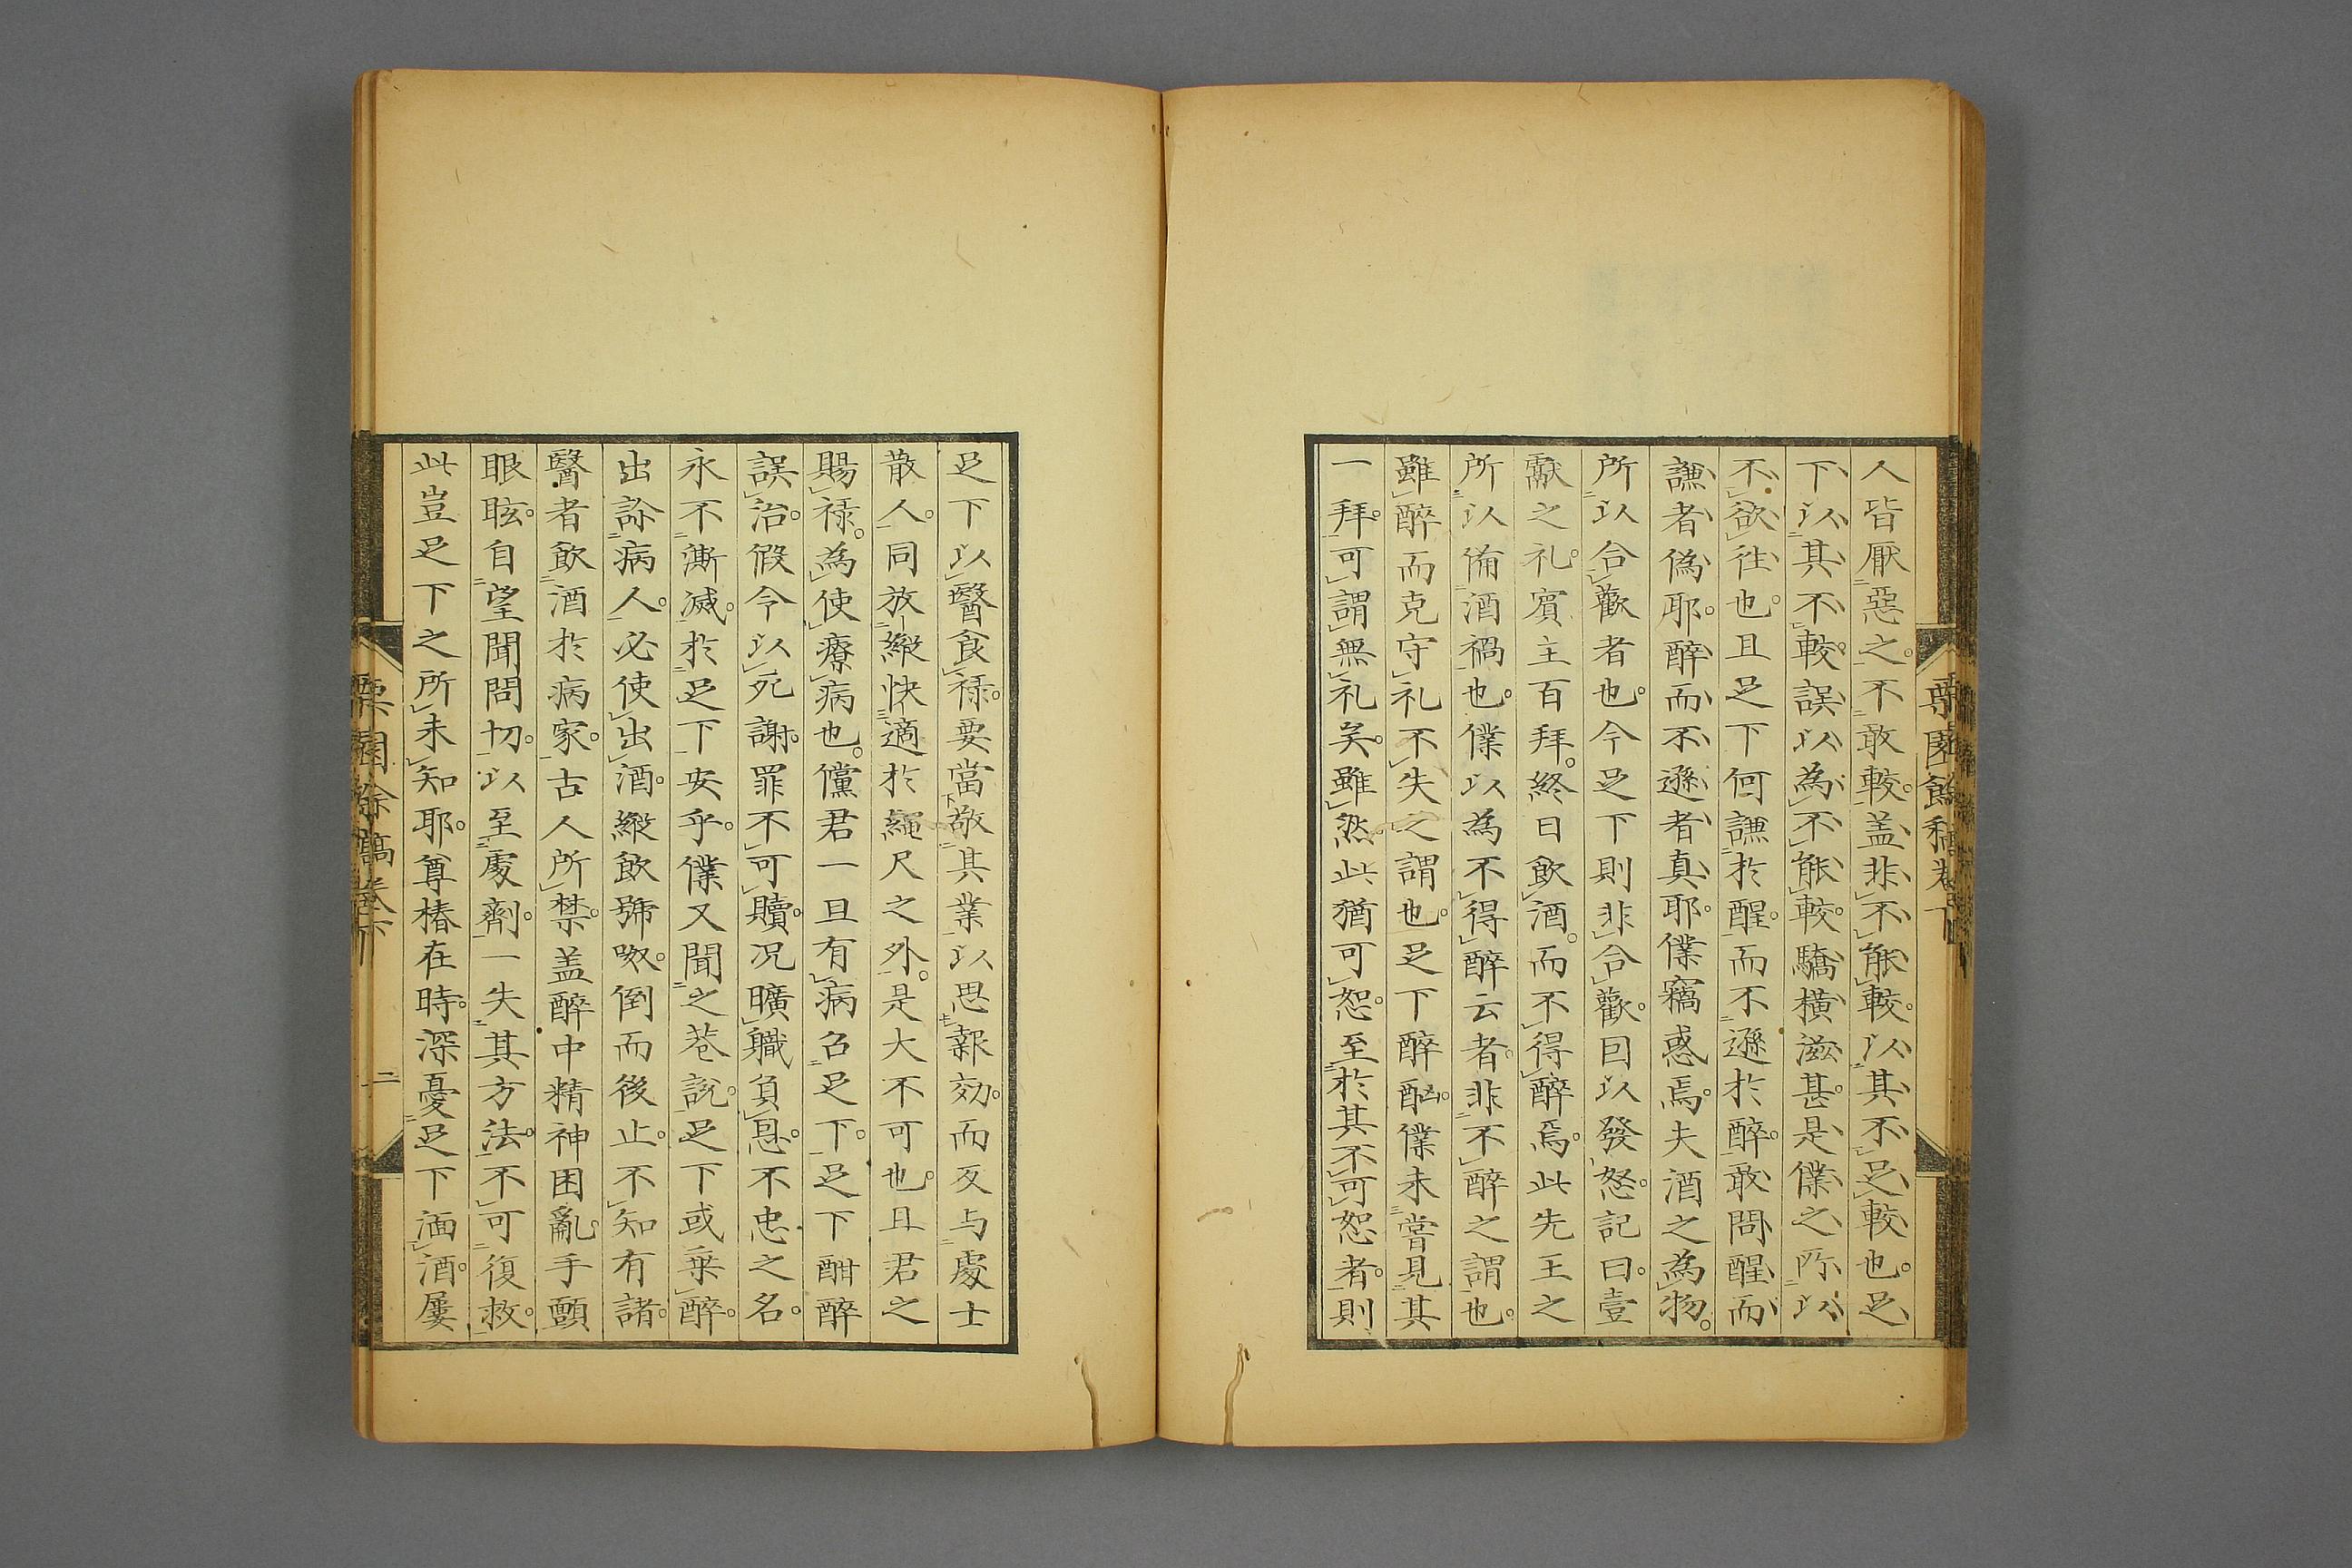 人皆厭惡之。不敢較。盖非不能較。以其不足較也。足
下以其不較。誤以為不能較。驕橫滋甚。是僕之所以
不欲往也。且足下何謙於醒。而不遜於醉。敢問醒而
謙者偽耶。醉而不遜者真耶。僕竊惑焉。夫酒之為物。
所以合歡者也。今足下則非合歡。囙以發怒。記曰。壹
獻之礼。賓主百拜。終日飲酒。而不得醉焉。此先王之
所以備酒禍也。僕以為不得醉云者。非不醉之謂也。
雖醉而克守礼。不失之謂也。足下醉酗。僕未嘗見其
一拜。可謂無礼矣。雖然。此猶可恕。至於其不可恕者。則
足下以醫食祿。要當敬其業以思報効。而反与處士
散人。同放縱快適於繩尺之外。是大不可也。且君之
賜祿。為使療病也。儻君一旦有病召足下。足下酣醉
誤治。假令以死謝。罪不可贖。況曠職負恩。不忠之名。
永不澌滅。於足下安乎。僕又聞之巷說。足下或乗醉。
出診病人。必使出酒。縱飲號呶。倒而後止。不知有諸。
醫者飲酒於病家。古人所禁。盖醉中精神困亂。手顫
眼眩。自望聞問切。以至處劑。一失其方法。不可復救。
此豈足下之所未知耶。尊椿在時。深憂足下湎酒。屢
栗園餘稿卷下
二